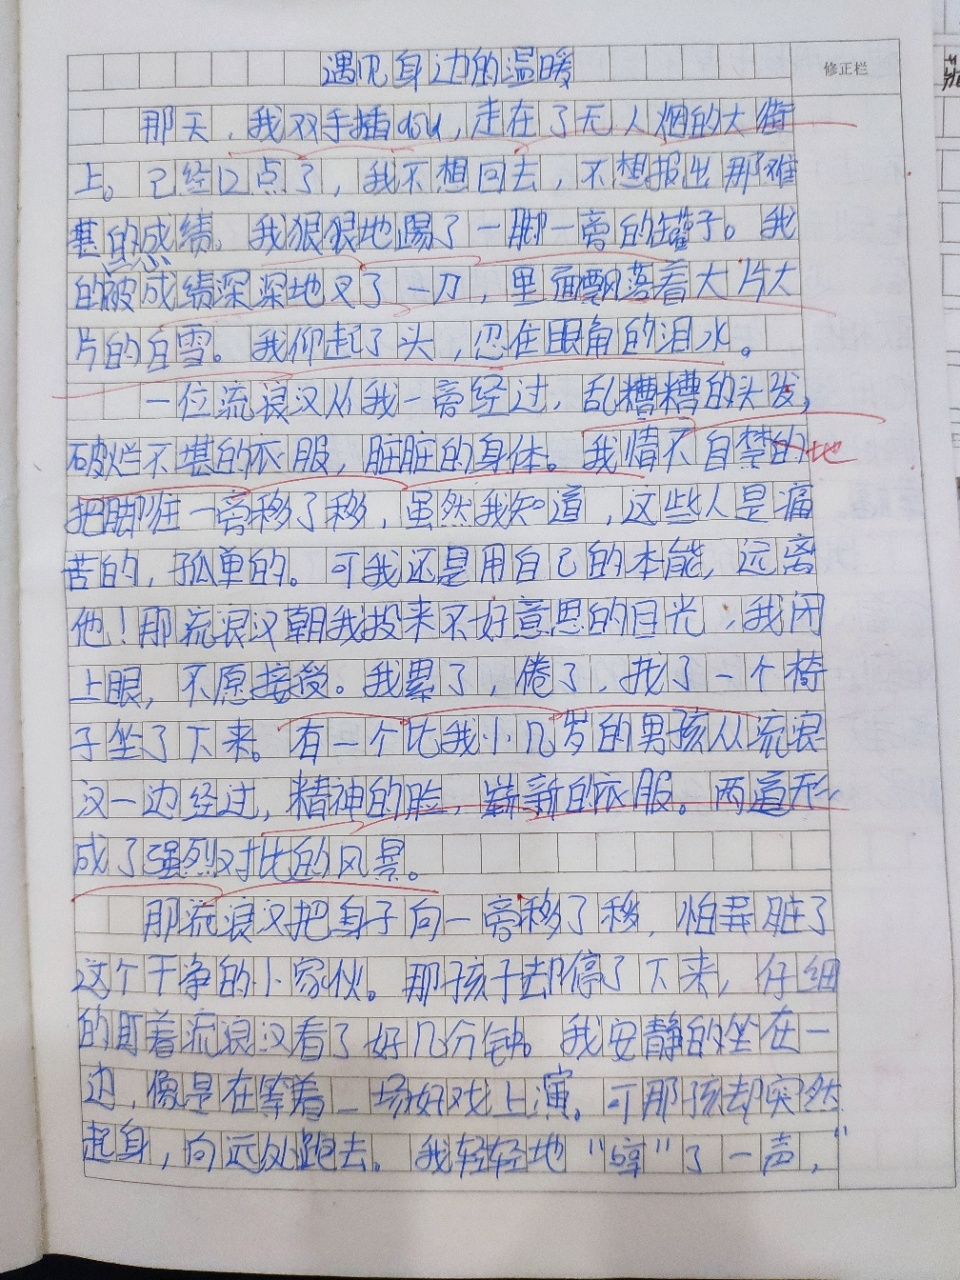 遇见身边的温暖
修正栏
那天，我双手插dōu，走在了无人烟的大街
上。已经12点了，我不想回去，不想报出那难
堪的成绩。我狠狠地踢了一脚一旁的罐子。我
的被成绩深深地叉了一刀，里面飘落着大片大
片的白雪。我仰起了头，忍住眼角的泪水。
一位流浪汉从我一旁经过，乱糟糟的头发，
破烂不堪的衣服，脏脏的身体。我情不自禁的地
把脚往一旁移了移，虽然我知道，这些人是痛
苦的，孤单的。可我还是用自己的本能，远离
他！那流浪汉朝我投来不好意思的目光，我闭
上眼，不愿接受。我累了，倦了，找了一个椅
子坐了下来。有一个比我小几岁的男孩从流浪
汉一边经过，精神的脸，崭新的衣服。两道形
成了强烈对比的风景。
那流浪汉把身子向一旁移了移，怕弄脏了
这个干净的小家伙。那孩子却停了下来，仔细
的盯着流浪汉看了好几分钟。我安静的坐在一
边，像是在等着一场好戏上演。可那孩却突然
起身，向远处跑去。我轻轻地“哼”了一声，“